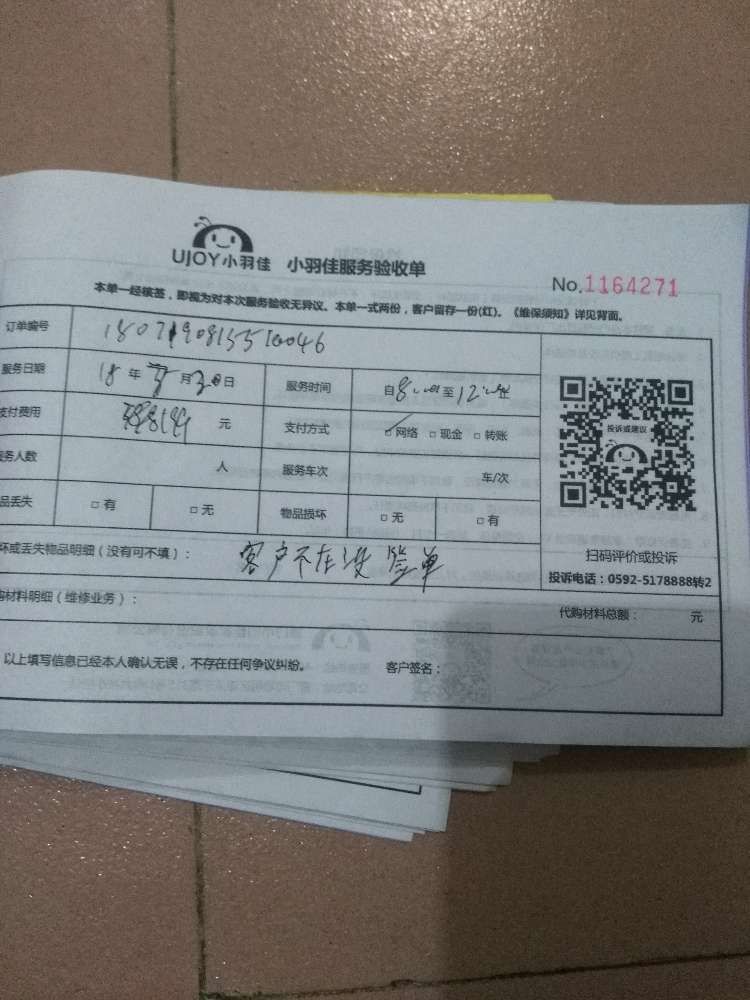 UJOY小羽佳 小羽佳服务验收单
No.1164271
本单一经核签，即视为对本次服务验收无异议、本单一式两份，客户留存一份(红)。《维保须知》详见背面。
订单编号 180719081551046
服务日期 18年 月30日 服务时间 自8:00至12:00
支付费用 元 支付方式 □网络 □现金 □转账
务人数 人 服务车次 车/次
品丢失 □有 □无 物品损坏 □无 □有
投诉或建议
扫码评价或投诉
投诉电话：0592-5178888转2
坏或丢失物品明细（没有可不填）： 客户不在没签单
购材料明细（维修业务）： 代购材料总额： 元
以上填写信息已经本人确认无误，不存在任何争议纠纷。 客户签名：